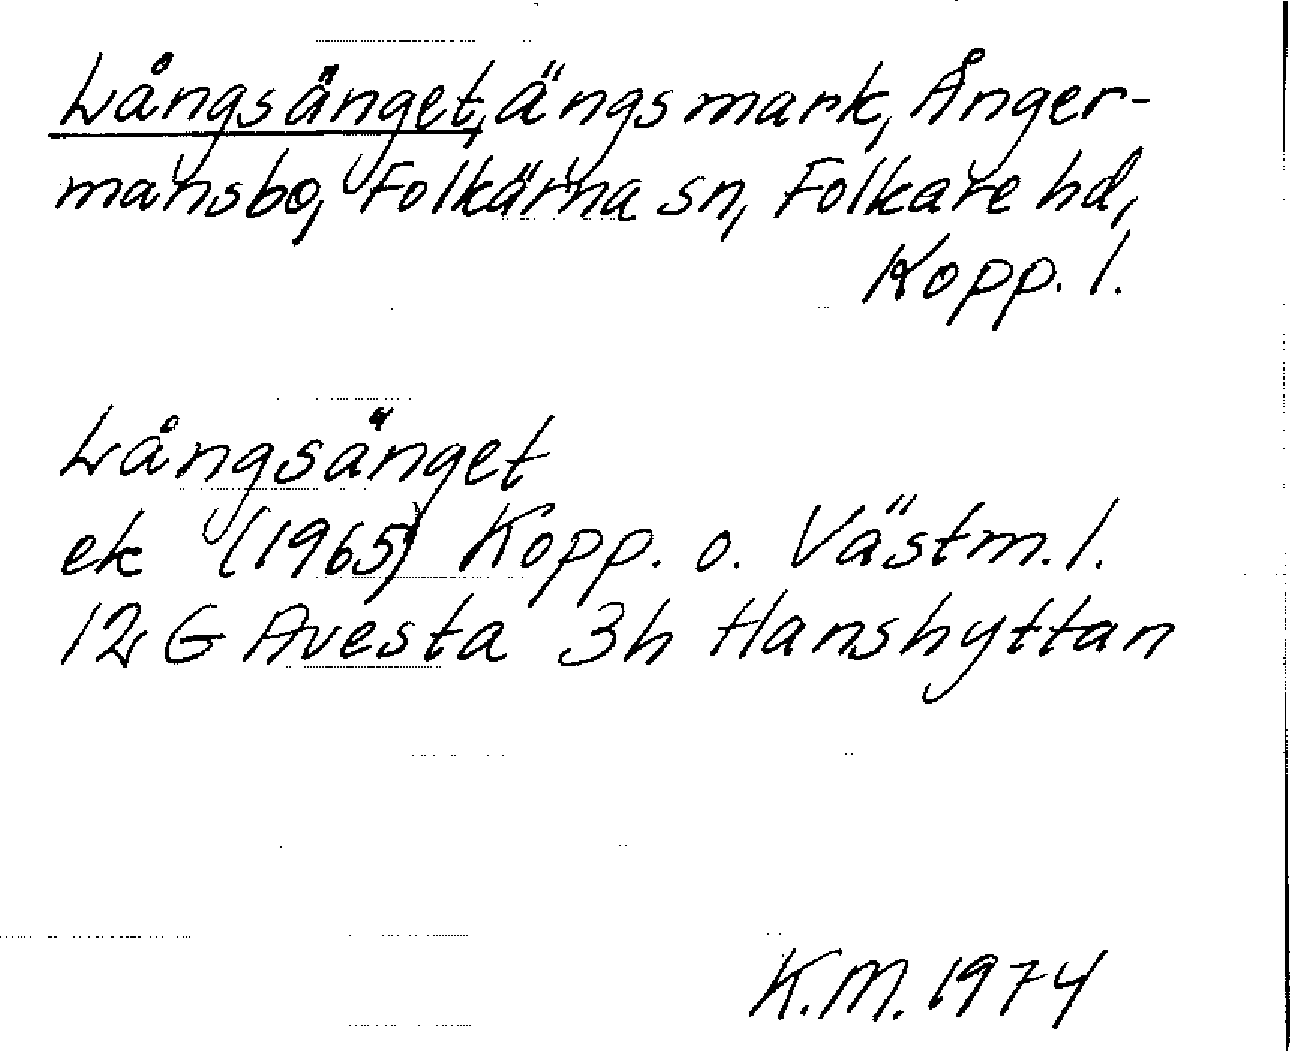 Långsänget, ängsmark, Ånger-
mansbo, Folkärna sn, Folkare hd,
Kopp. l.
Långsänget
ek (1965) Kopp. o. Västm. l.
12 G Avesta 3h Hanshyttan
K.M. 1974